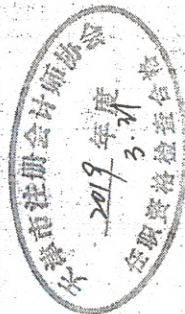 市注册会计师协会
2019 年度
任职资格检查合格